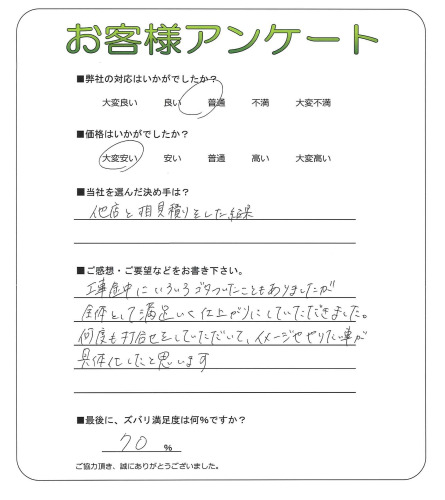 お客様アンケート
■弊社の対応はいかがでしたか？
大変良い 良い 普通 不満 大変不満
■価格はいかがでしたか？
大変安い 安い 普通 高い 大変高い
■当社を選んだ決め手は？
他店と相見積りをした結果
■ご感想・ご要望などをお書き下さい。
工事途中にいろいろゴタついたこともありましたが
全体として満足いく仕上がりにしていただきました。
何度も打合せをしていただいて、イメージややりたい事が
具体化したと思います
■最後に、ズバリ満足度は何%ですか？
70 %
ご協力頂き、誠にありがとうございました。